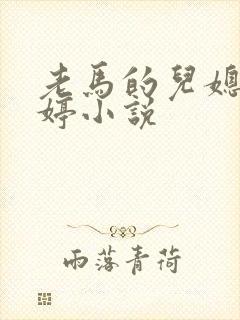 老馬的兒媳
婷小說
雨落青荷